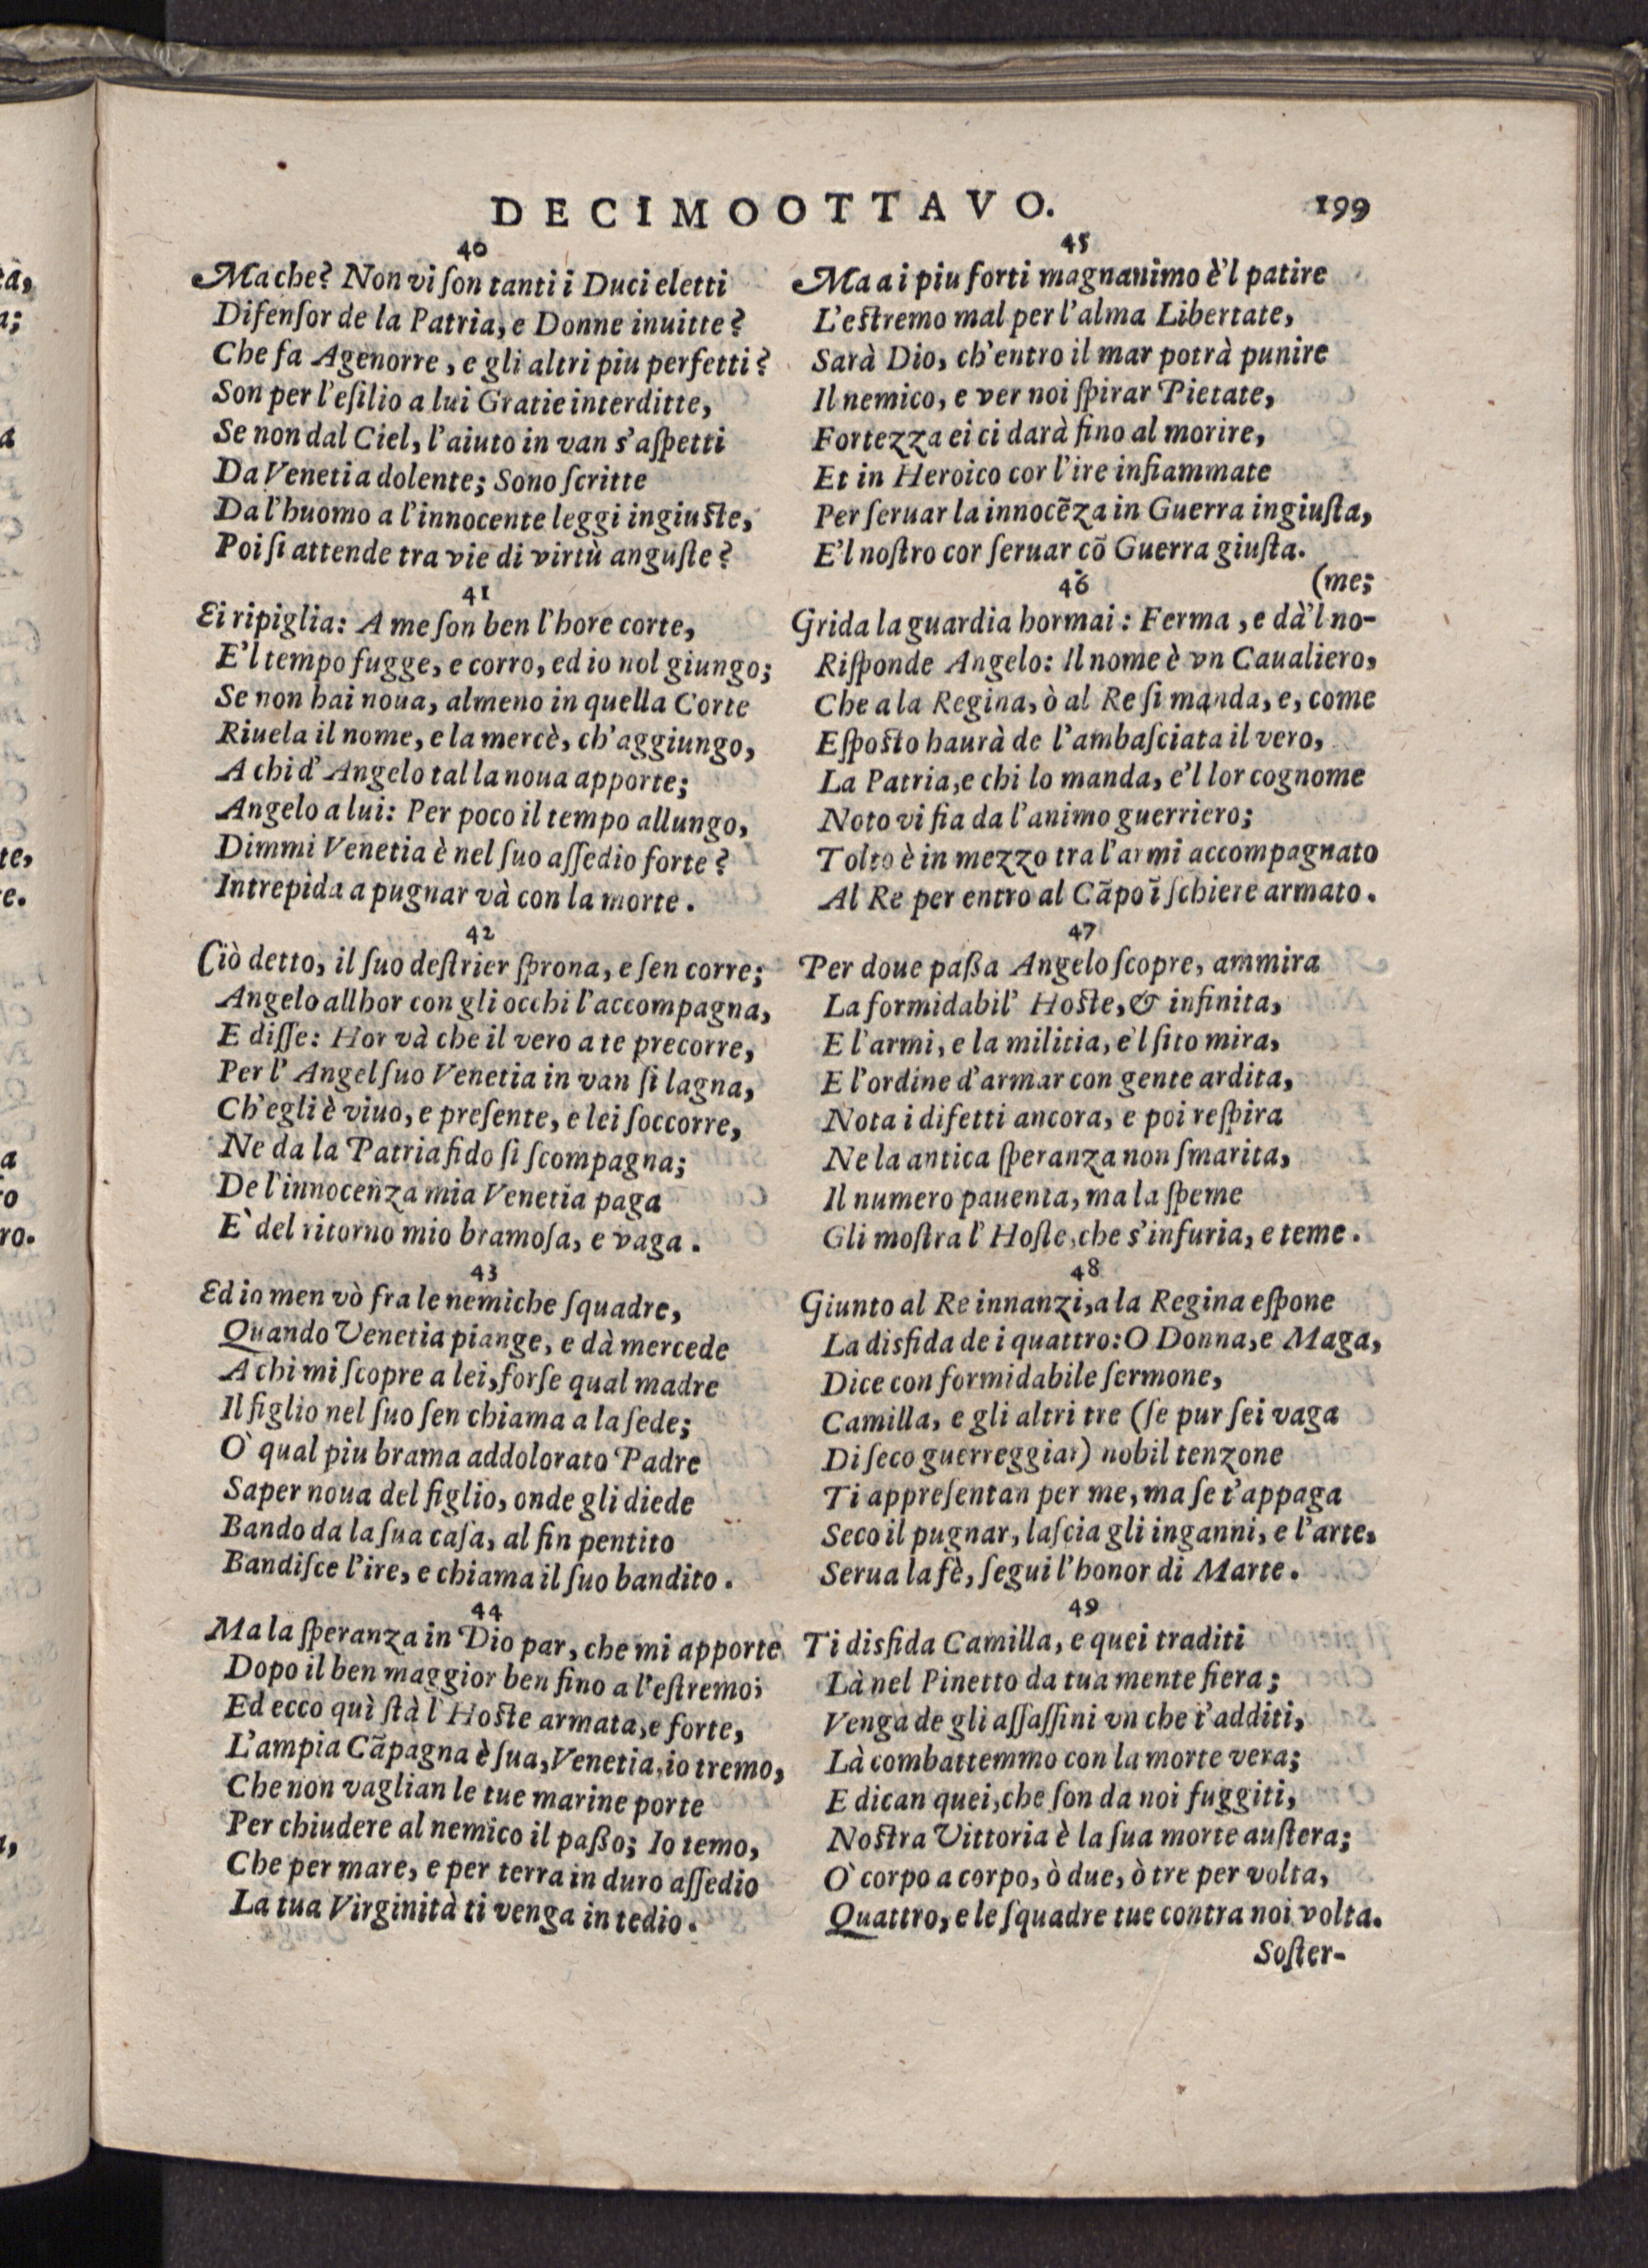 DECIMOOTTAVO. 199
40
Ma che? Non vi ſon tanti i Duci eletti
Difenſor de la Patria, e Donne inuitte?
Che fa Agenorre, e gli altri piu perfetti?
Son per l'eſilio a lui Gratie interditte,
Se non dal Ciel, l'aiuto in van s'aſpetti
Da Venetia dolente; Sono ſcritte
Da l'huomo a l'innocente leggi ingiuſte,
Poi ſi attende tra vie di virtù anguſte?
41
Ei ripiglia: A me ſon ben l'hore corte,
E'l tempo fugge, e corro, ed io nol giungo;
Se non hai noua, almeno in quella Corte
Riuela il nome, e la mercè, ch'aggiungo,
A chi d'Angelo tal la noua apporte;
Angelo a lui: Per poco il tempo allungo,
Dimmi Venetia è nel ſuo aſſedio forte?
Intrepida a pugnar và con la morte.
42
Ciò detto, il ſuo deſtrier ſprona, e ſen corre;
Angelo allhor con gli occhi l'accompagna,
E diſſe: Hor và che il vero a te precorre,
Per l'Angel ſuo Venetia in van ſi lagna,
Ch'egli è viuo, e preſente, e lei ſoccorre,
Ne da la Patria fido ſi ſcompagna;
De l'innocenza mia Venetia paga
E' del ritorno mio bramoſa, e vaga.
43
Ed io men vò fra le nemiche ſquadre,
Quando Venetia piange, e dà mercede
A chi mi ſcopre a lei, forſe qual madre
Il figlio nel ſuo ſen chiama a la ſede;
O' qual piu brama addolorato Padre
Saper noua del figlio, onde gli diede
Bando da la ſua caſa, al fin pentito
Bandiſce l'ire, e chiama il ſuo bandito.
44
Ma la ſperanza in Dio par, che mi apporte
Dopo il ben maggior ben fino a l'eſtremo;
Ed ecco quì ſtà l'Hoſte armata, e forte,
L'ampia Cãpagna è ſua, Venetia, io tremo,
Che non vaglian le tue marine porte
Per chiudere al nemico il paßo; Io temo,
Che per mare, e per terra in duro aſſedio
La tua Virginità ti venga in tedio.
45
Ma a i piu forti magnanimo è'l patire
L'eſtremo mal per l'alma Libertate,
Sarà Dio, ch'entro il mar potrà punire
Il nemico, e ver noi ſpirar Pietate,
Fortezza ei ci darà fino al morire,
Et in Heroico cor l'ire infiammate
Per ſeruar la innocẽza in Guerra ingiuſta,
E'l noſtro cor ſeruar cõ Guerra giuſta.
46 (me;
Grida la guardia hormai: Ferma, e dà'l no-
Riſponde Angelo: Il nome è vn Caualiero,
Che a la Regina, ò al Re ſi manda, e, come
Eſpoſto haurà de l'ambaſciata il vero,
La Patria, e chi lo manda, e'l lor cognome
Noto vi fia da l'animo guerriero;
Tolto è in mezzo tra l'armi accompagnato
Al Re per entro al Cãpo ĩ ſchiere armato.
47
Per doue paßa Angelo ſcopre, ammira
La formidabil' Hoſte, & infinita,
E l'armi, e la militia, e'l ſito mira,
E l'ordine d'armar con gente ardita,
Nota i difetti ancora, e poi reſpira
Ne la antica ſperanza non ſmarita,
Il numero pauenta, ma la ſpeme
Gli moſtra l'Hoſte, che s'infuria, e teme.
48
Giunto al Re innanzi, a la Regina eſpone
La disfida de i quattro: O Donna, e Maga,
Dice con formidabile ſermone,
Camilla, e gli altri tre (ſe pur ſei vaga
Di ſeco guerreggiar) nobil tenzone
Ti appreſentan per me, ma ſe t'appaga
Seco il pugnar, laſcia gli inganni, e l'arte,
Serua la fè, ſegui l'honor di Marte.
49
Ti disfida Camilla, e quei traditi
Là nel Pinetto da tua mente fiera;
Venga de gli aſſaſſini vn che t'additi,
Là combattemmo con la morte vera;
E dican quei, che ſon da noi fuggiti,
Noſtra Vittoria è la ſua morte auſtera;
O' corpo a corpo, ò due, ò tre per volta,
Quattro, e le ſquadre tue contra noi volta.
Soſter-